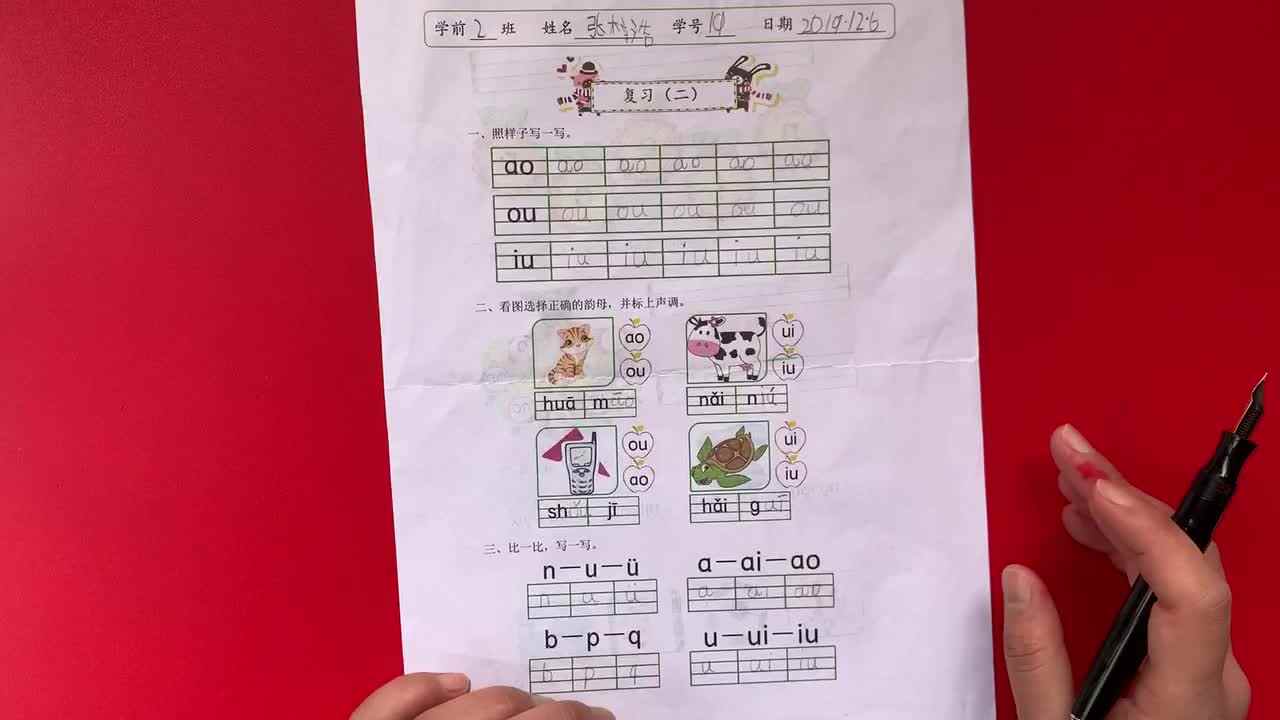 学前 2 班 姓名 张 学号 19 日期 2019.12.6
复习（二）
一、照样子写一写。
ao ao ao ao ao ao
ou ou ou ou ou ou
iu iu iu iu iu iu
二、看图选择正确的韵母，并标上声调。
ao ou ui iu
huā māo nǎi niú
ou ao ui iu
shǒu jī hǎi guī
三、比一比，写一写。
n—u—ü a—ai—ao
n u ü a ai ao
b—p—q u—ui—iu
b p q u ui iu